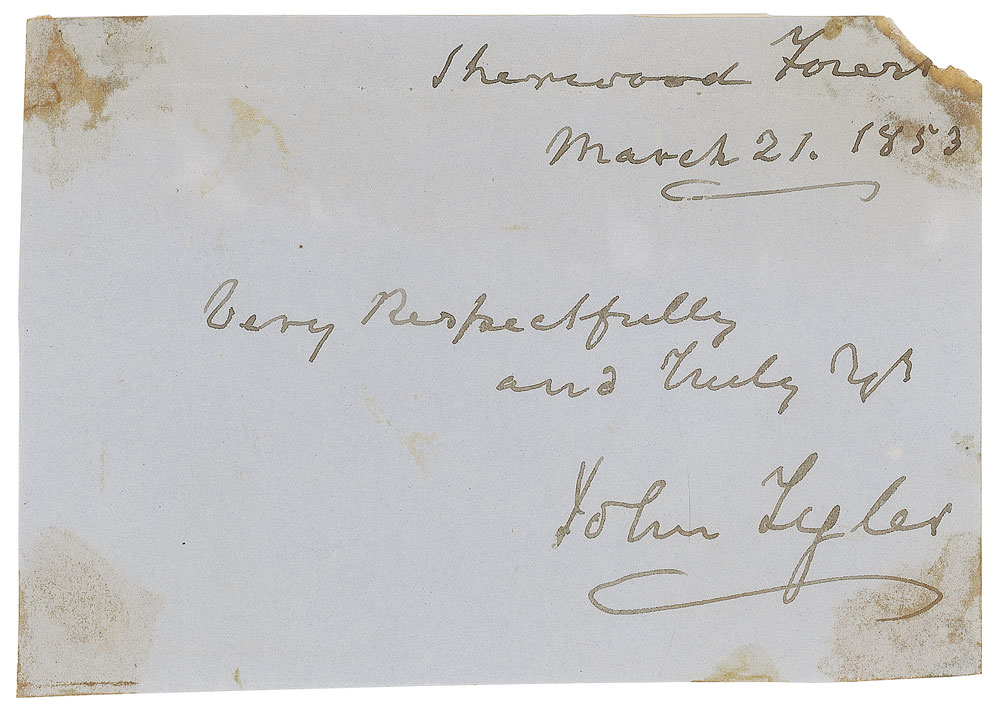 Sherwood Forest
March 21. 1853
Very Respectfully
and Truly Yrs
John Tyler